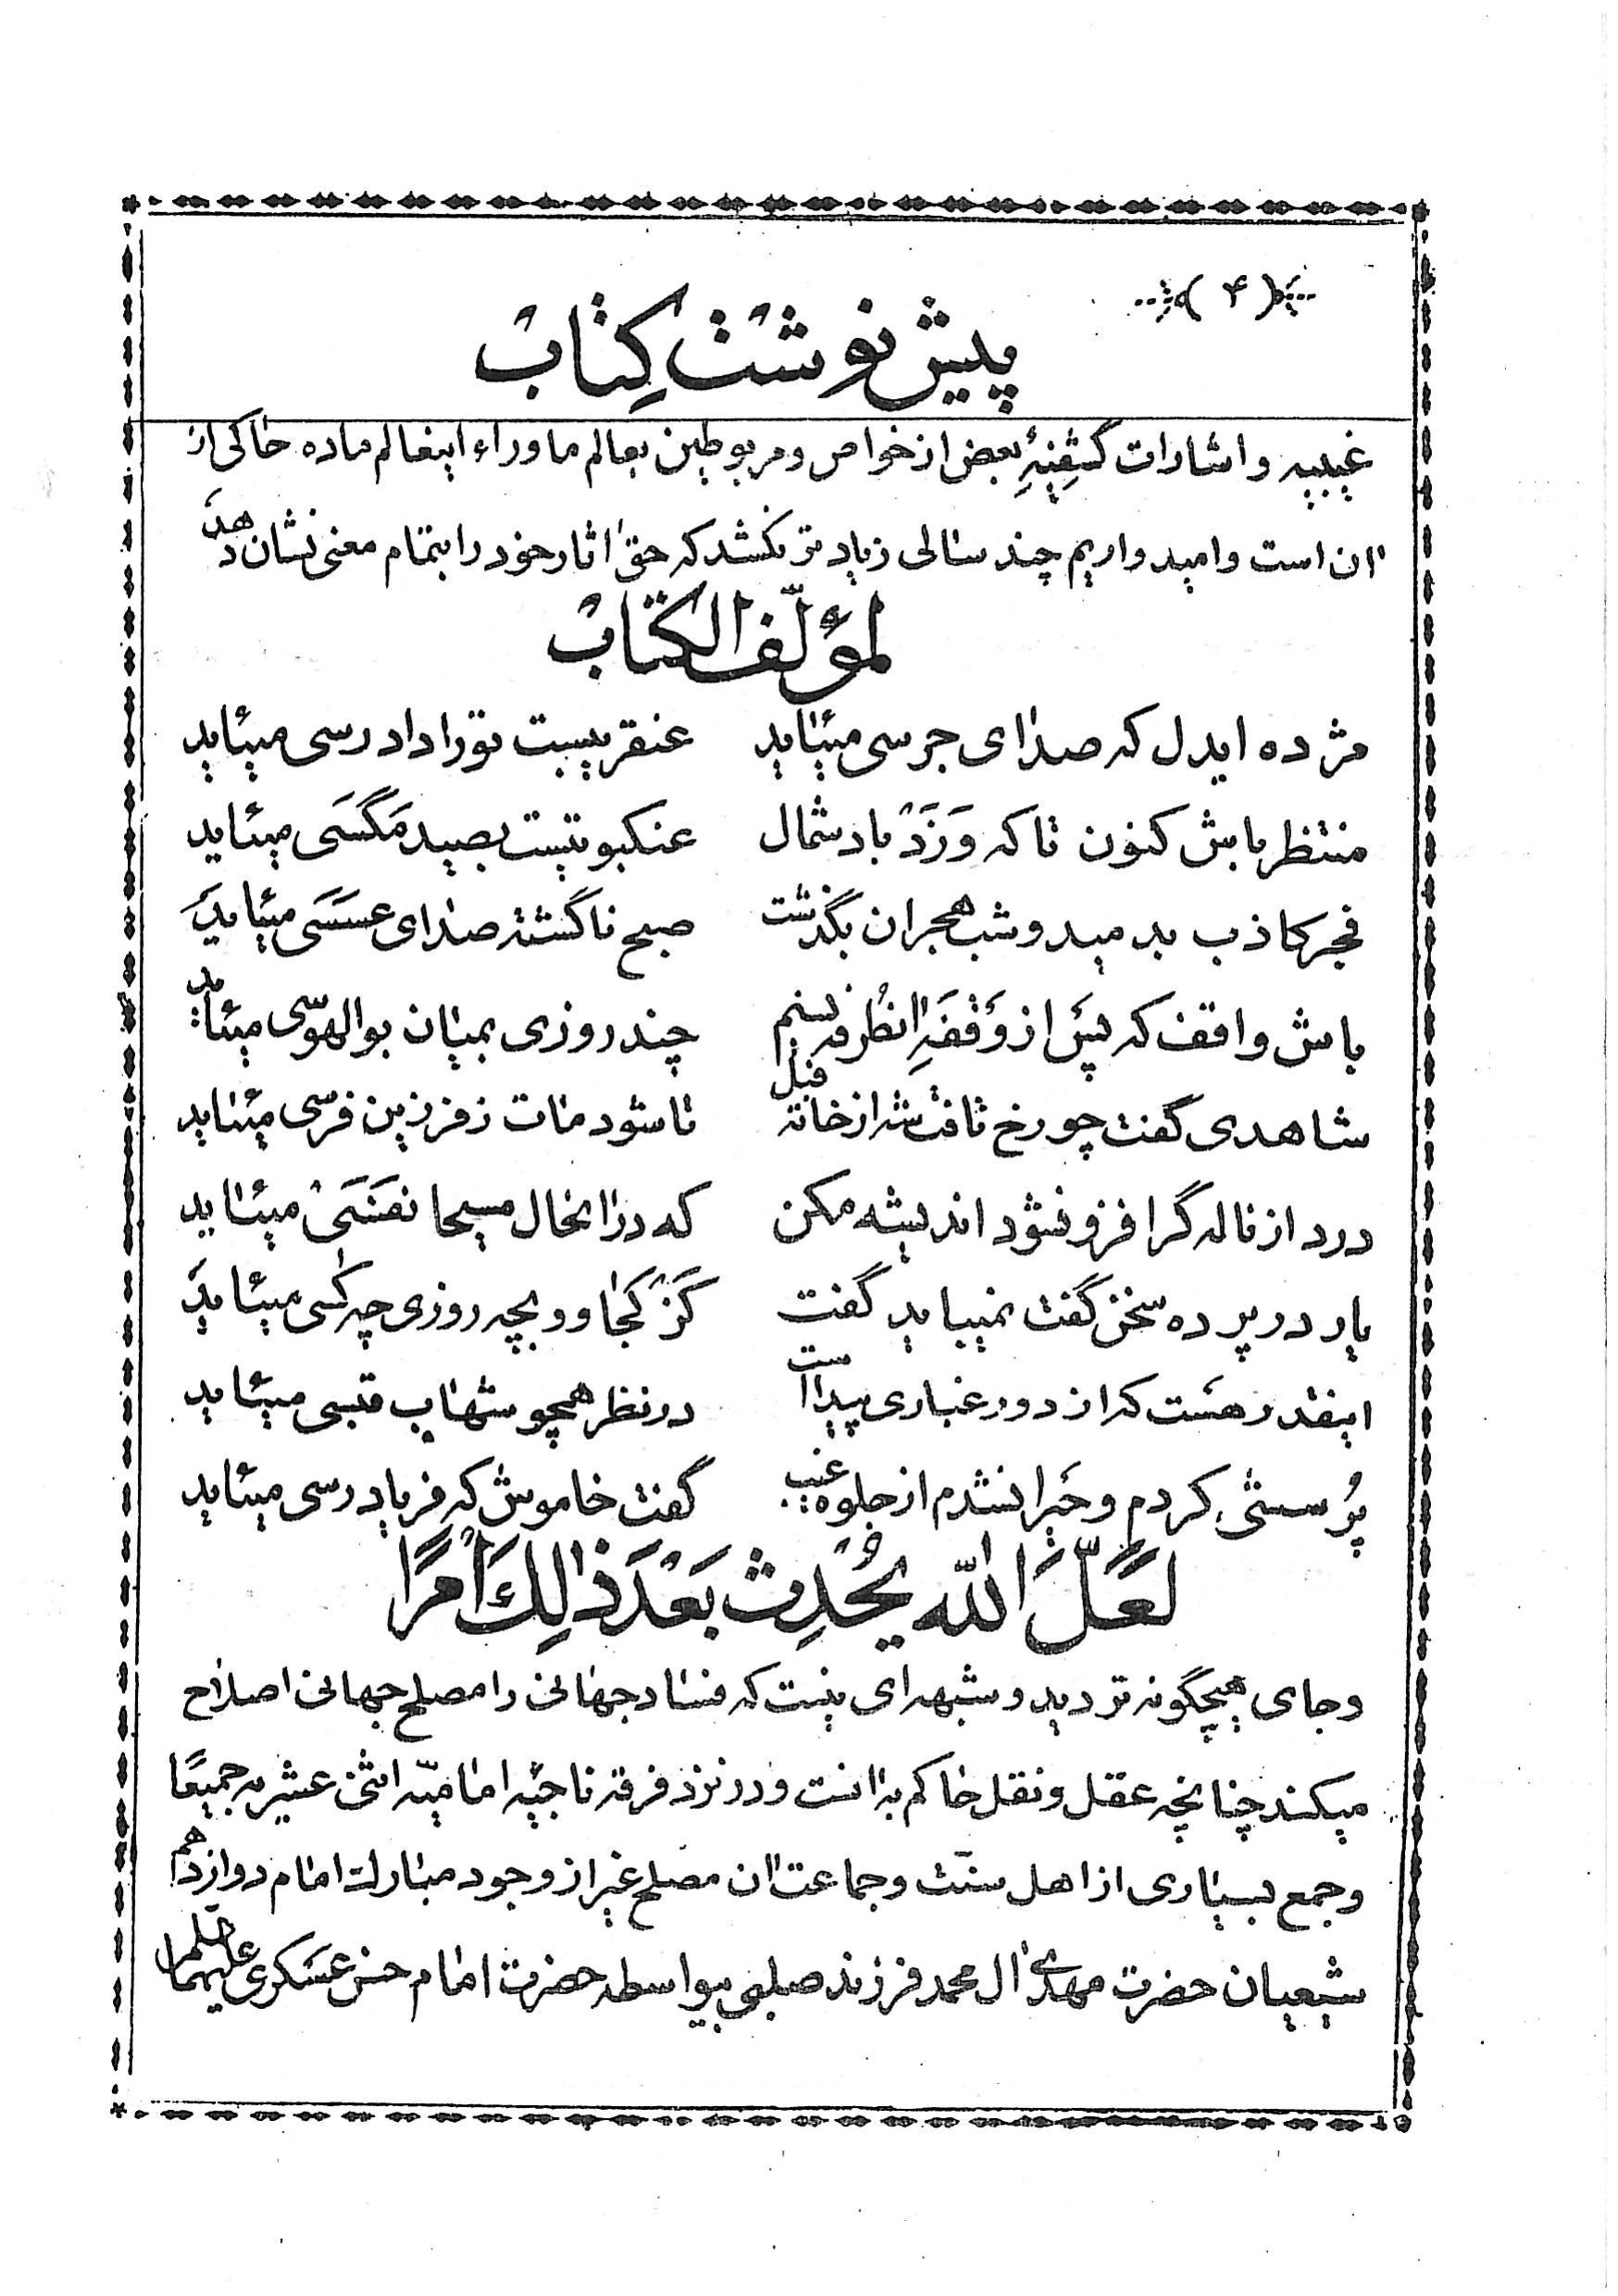 (۴)
پیش نوشت کِتاب
غیبیه و اشارات کشفیّهِ بعض از خواص و مربوطین بعالم ماوراء اینعالم ماده حاکی از
آن است و امیدواریم چند سالی زیادتر نکشد که حق آثار خود را بتمام معنی نشان دهد
لمؤلّف الکتاب
مژده ایدل که صدای جرسی میئاید عنقریبست تو را دادرسی میئاید
منتظر باش کنون تا که وَزَدْ باد شمال عنکبوتیست بصید مَگسَی میئاید
فجر کاذب بدمید و شب هجران بگذشت صبح ناگشته صدای عسَسَی میئاید
باش واقف که پس از وَقفَهِ انظرفه نسیم چند روزی بمیان بوالهوسّی میئاید
شاهدی گفت چو رخ تافت شه از خانه فیل تا شود مات ز فرزین فرسی میئاید
درد از ناله گر افزون شود اندیشه مکن که در اینحال مسیحا نفَسَیْ میئاید
یار در پرده سخن گفت نمیباید گفت کَزْ کجا و وبچه روزی چه کسی میئاید
اینقدر هست که از دور غباری پیدا است در نظر همچو شهاب قبسی میئاید
پُرسشی کردم و حیران شدم از جلوه غیب گفت خاموش که فریاد رسی میئاید
لَعَلَّ اللّٰه یُحْدِث بَعْدَ ذٰلِكَ اَمْرًا
و جای هیچگونه تردید و شبهه ای نیست که فساد جهانی را مصلح جهانی اصلاح
میکند چنانچه عقل و نقل حاکم بدانست و در نزد فرقه ناجیه امامیّه اثنی عشریه جمیعًا
و جمع بسیاری از اهل سنّت و جماعت آن مصلح غیر از وجود مبارك امام دوازدهم
شیعیان حضرت مهدی آل محمد فرزند صلبی بیواسطه حضرت امام حسن عسکری علیهما السلم